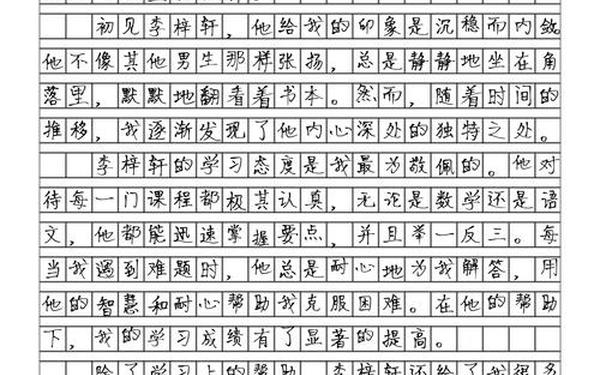 初见李梓轩，他给我的印象是沉稳而内敛。
他不像其他男生那样张扬，总是静静地坐在角
落里，默默地翻看着书本。然而，随着时间的
推移，我逐渐发现了他内心深处的独特之处。
李梓轩的学习态度是我最为敬佩的。他对
待每一门课程都极其认真，无论是数学还是语
文，他都能迅速掌握要点，并且举一反三。每
当我遇到难题时，他总是耐心地为我解答，用
他的智慧和耐心帮助我克服困难。在他的帮助
下，我的学习成绩有了显著的提高。
除了学习上的帮助，李梓轩还给了我很多